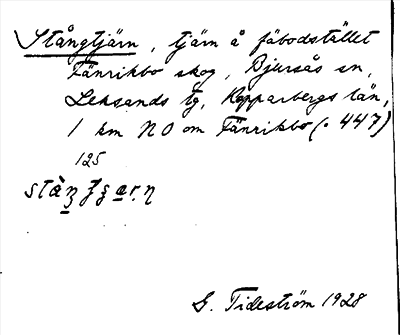 Stångtjärn, tjärn å fäbodstället
Fänrikbo skog, Bjursås sn,
Leksands tg, Kopparbergs län,
1 km NO om Fänrikbo (. 447)
125
G. Tideström 1928